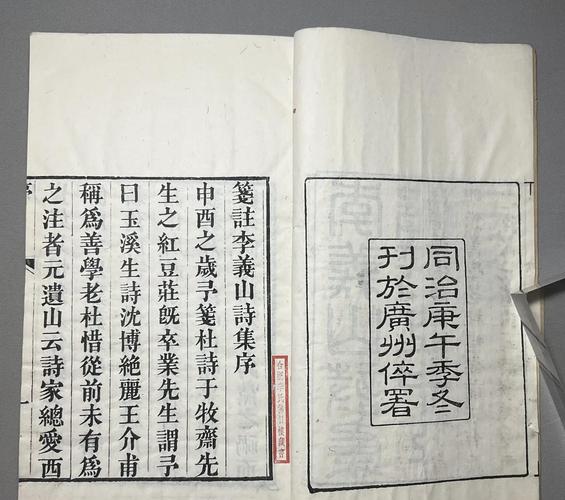 同治庚午季冬
刊於廣州倅署
箋註李義山詩集序
申酉之歲予箋杜詩于牧齋先
生之紅豆莊旣卒業先生謂予
曰玉溪生詩沈博絶麗王介甫
稱爲善學老杜惜從前未有爲
之注者元遺山云詩家總愛西